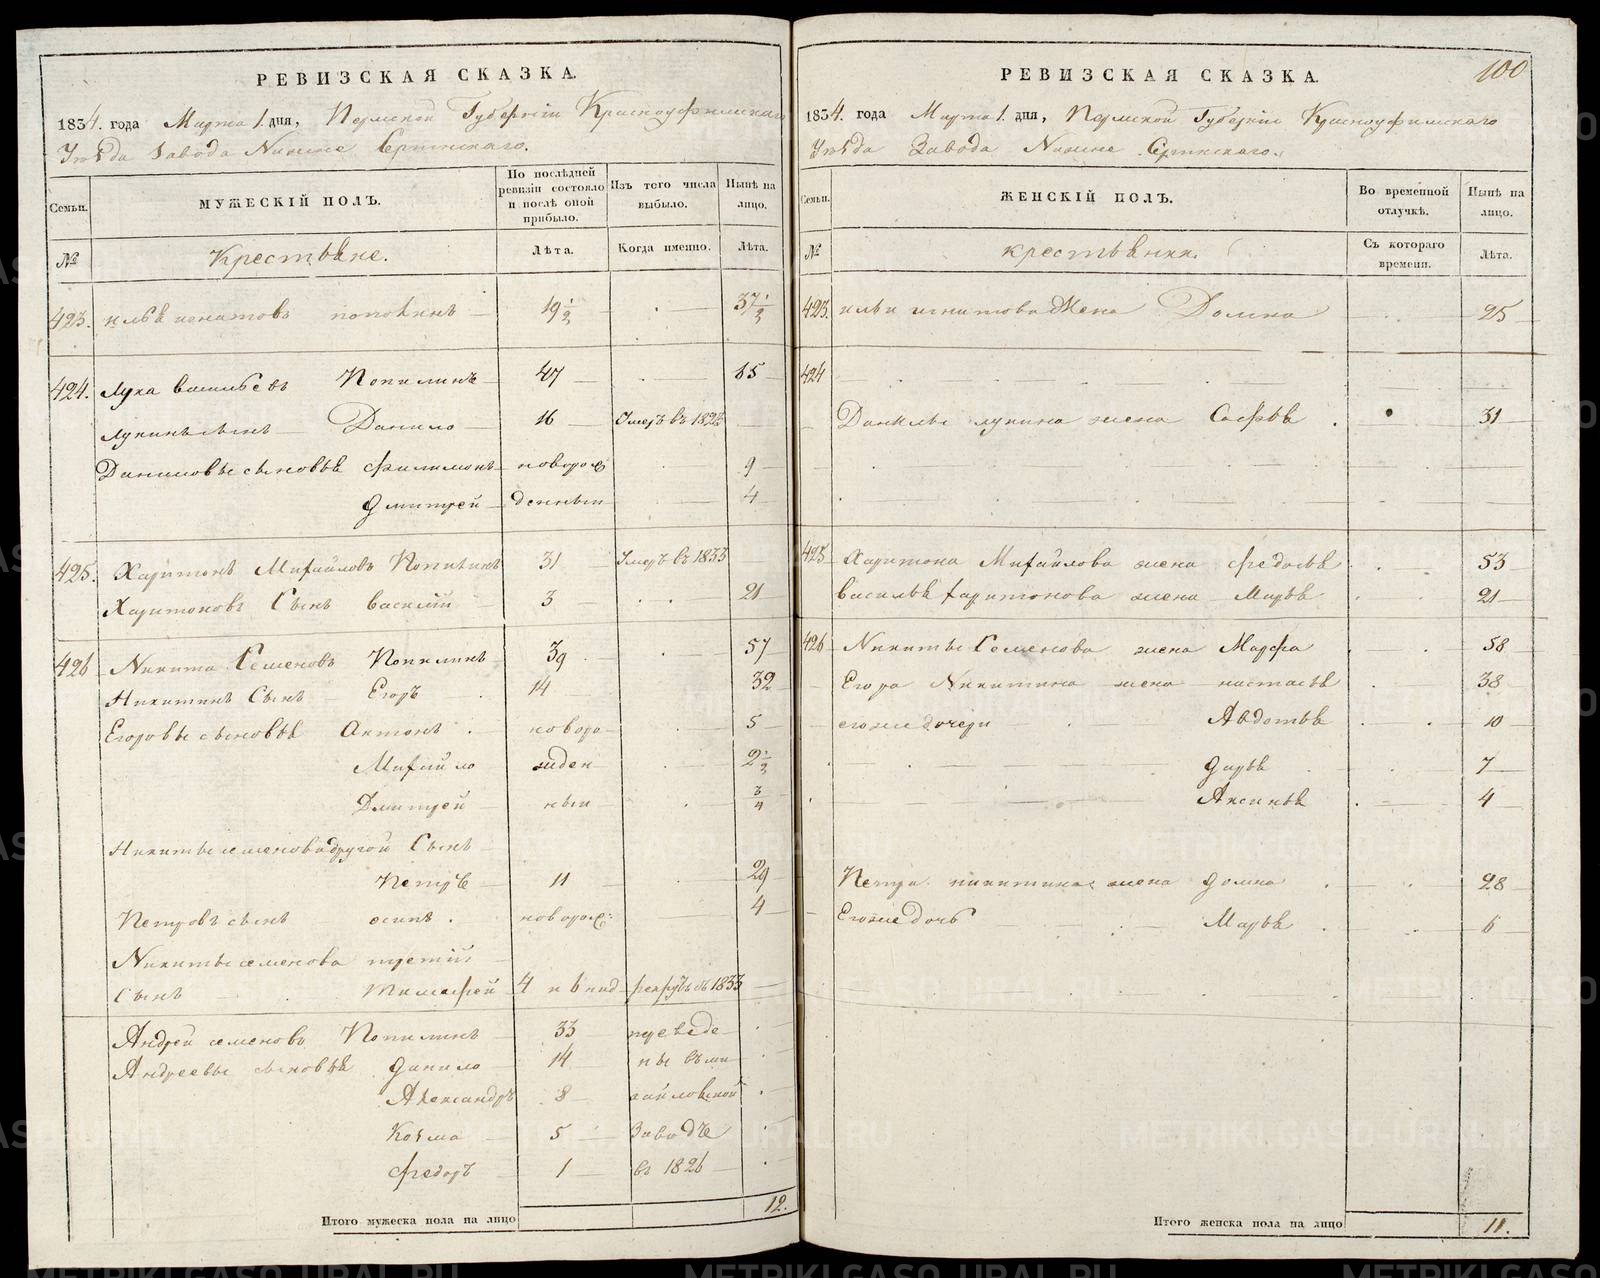 РЕВИЗСКАЯ СКАЗКА.
1834. года Марта 1. дня, Пермской Губернiи Красноуфимскаго
Уѣзда Завода Нижне Сергинскаго.
Семьи. МУЖЕСКІЙ ПОЛЪ. По послѣдней ревизіи состояло и послѣ оной прибыло. Изъ того числа выбыло. Нынѣ на лицо.
№ Крестьяне. Лѣта. Когда именно. Лѣта.
423. Илья игнатовъ 19 1/2 37 1/2
424. Лука васильевъ Попилинъ 47 65
лукинъ сынъ Данило 16 Умеръ въ
Даниловы сыновья филимонъ новорож 9
Дмитрей денныи 4
425. Харитонъ Михайловъ 31 Умеръ въ 1833
Харитоновъ Сынъ василiй 3 21
426 Никита Семеновъ Попилинъ 39 57
Никитинъ Сынъ Егоръ 14 32
Егоровы сыновья Антонъ новоро 5
Михайло жден 2 1/2
Дмитрей ныи 3/4
Никиты семенова другой Сынъ
Петръ 11 29
Петровъ сынъ осипъ новорож: 4
Никиты семенова третiй
Сынъ Тимофей 4 рекруты въ 1833
Андрей семеновъ Попилинъ 33 переведе
Андреевы сыновья Данило 14 ны въ ми
Александръ 8 хайловской
Козма 5 Заводъ
Федоръ 1 въ 1826
Итого мужеска пола на лицо 12.
100
РЕВИЗСКАЯ СКАЗКА.
1834. года Марта 1. дня, Пермской Губернiи Красноуфимскаго
Уѣзда Завода Нижне Сергинскаго.
Семьи. ЖЕНСКІЙ ПОЛЪ. Во временной отлучкѣ. Нынѣ на лицо.
№ крестьянки. Съ котораго времени. Лѣта.
423. ильи игнатова Жена Домна 25
424
Данилы лукина жена Софья 31
425 Харитона Михайлова жена Федосья 53
василья харитонова жена Марья 21
426 Никиты Семенова жена Марфа 58
Егора Никитина жена настасья 38
егоже дочери Авдотья 10
Дарья 7
Аксинья 4
Петра никитина жена домна 28
Егоже дочь Марья 6
Итого женска пола на лицо 11.
METRIKI.GASO-URAL.RU